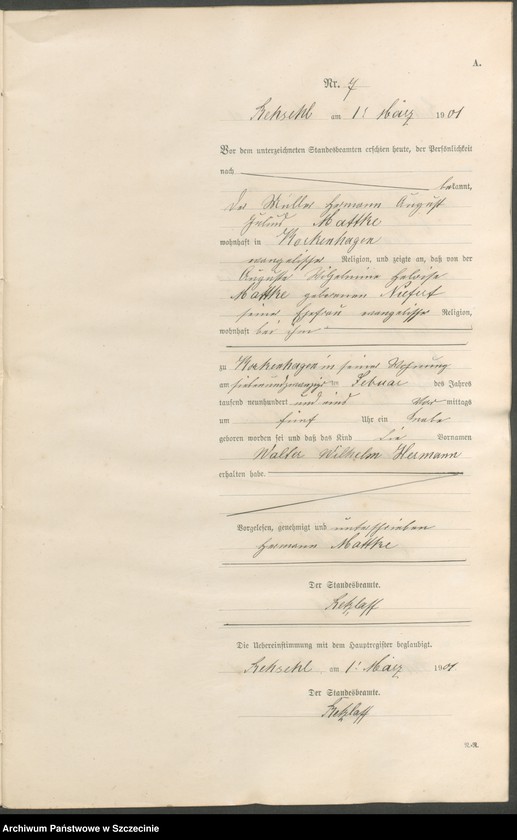 A.
Nr. 7
Rehsehl am 1. März 1901
Vor dem unterzeichneten Standesbeamten erschien heute, der Persönlichkeit
nach
bekannt,
der Müller Hermann August
Mattke
wohnhaft in Korkenhagen
evangelischer Religion, und zeigte an, daß von der
Auguste Wilhelmine Heloise
Mattke geborenen Niefert
seiner Ehefrau evangelischer Religion,
wohnhaft bei ihm
zu Korkenhagen in seiner Wohnung
am siebenundzwanzigsten Februar des Jahres
tausend neunhundert und eins Vor mittags
um fünf Uhr ein Knabe
geboren worden sei und daß das Kind die Vornamen
Walter Wilhelm Hermann
erhalten habe.
Vorgelesen, genehmigt und unterschrieben
Hermann Mattke
Der Standesbeamte.
Retzlaff
Die Uebereinstimmung mit dem Hauptregister beglaubigt.
Rehsehl am 1. März 1901
Der Standesbeamte.
Retzlaff
N.-R.
Archiwum Państwowe w Szczecinie